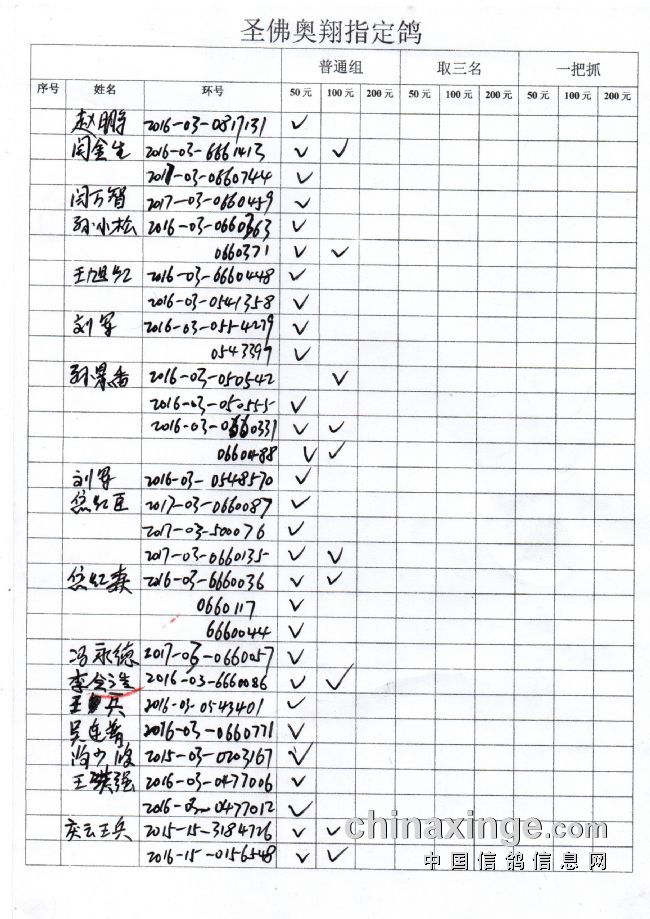 圣佛奥翔指定鸽
普通组 取三名 一把抓
序号 姓名 环号 50元 100元 200元 50元 100元 200元 50元 100元 200元
赵明 2016-03-0817131 ✓
闫金生 2016-03-6661413 ✓ ✓
2017-03-0660744 ✓
闫万智 2017-03-0660459 ✓
孙小松 2016-03-0660363 ✓
0660371 ✓ ✓
王旭红 2016-03-6660448 ✓
2016-03-0541358 ✓
刘军 2016-03-0554279 ✓
0543397 ✓
孙景 2016-03-050542 ✓
2016-03-050555 ✓
2016-03-0660331 ✓ ✓
0660488 ✓ ✓
刘军 2016-03-0548570 ✓
红臣 2017-03-0660087 ✓
2017-03-500076 ✓
2017-03-0660135 ✓ ✓
红森 2016-03-6660036 ✓ ✓
0660117 ✓
6660044 ✓
冯永德 2017-03-0660057 ✓
李 2016-03-6660086 ✓ ✓
王 兵 2016-03-0543401 ✓
吴连 2016-03-0660771 ✓
尚少波 2015-03-0203167 ✓
王洪强 2016-03-0477006 ✓
2016-03-0477012 ✓
庆云王兵 2015-15-3184726 ✓ ✓
2016-15-0156548 ✓ ✓
chinaxinge.com
中国信鸽信息网